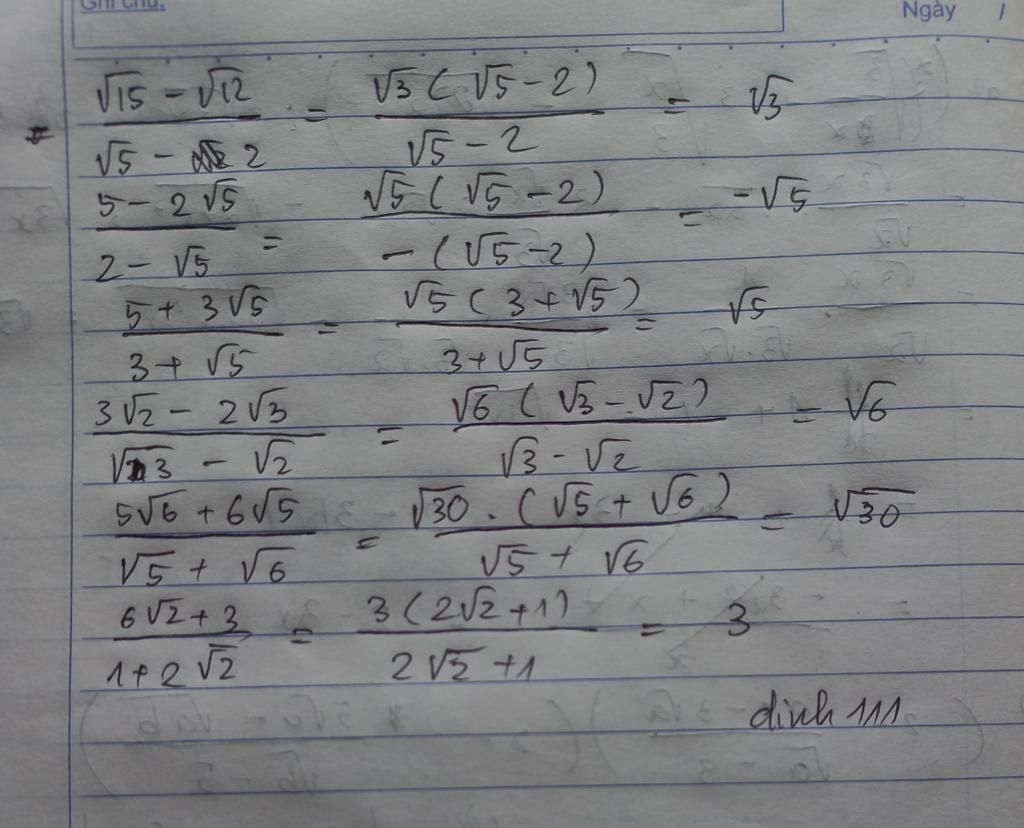 Ghi chú:
Ngày /
(√15 - √12)/(√5 - 2) = √3(√5 - 2)/(√5 - 2) = √3
(5 - 2√5)/(2 - √5) = √5(√5 - 2)/(-(√5 - 2)) = -√5
(5 + 3√5)/(3 + √5) = √5(3 + √5)/(3 + √5) = √5
(3√2 - 2√3)/(√3 - √2) = √6(√3 - √2)/(√3 - √2) = √6
(5√6 + 6√5)/(√5 + √6) = √30 . (√5 + √6)/(√5 + √6) = √30
(6√2 + 3)/(1 + 2√2) = 3(2√2 + 1)/(2√2 + 1) = 3
dinh 111